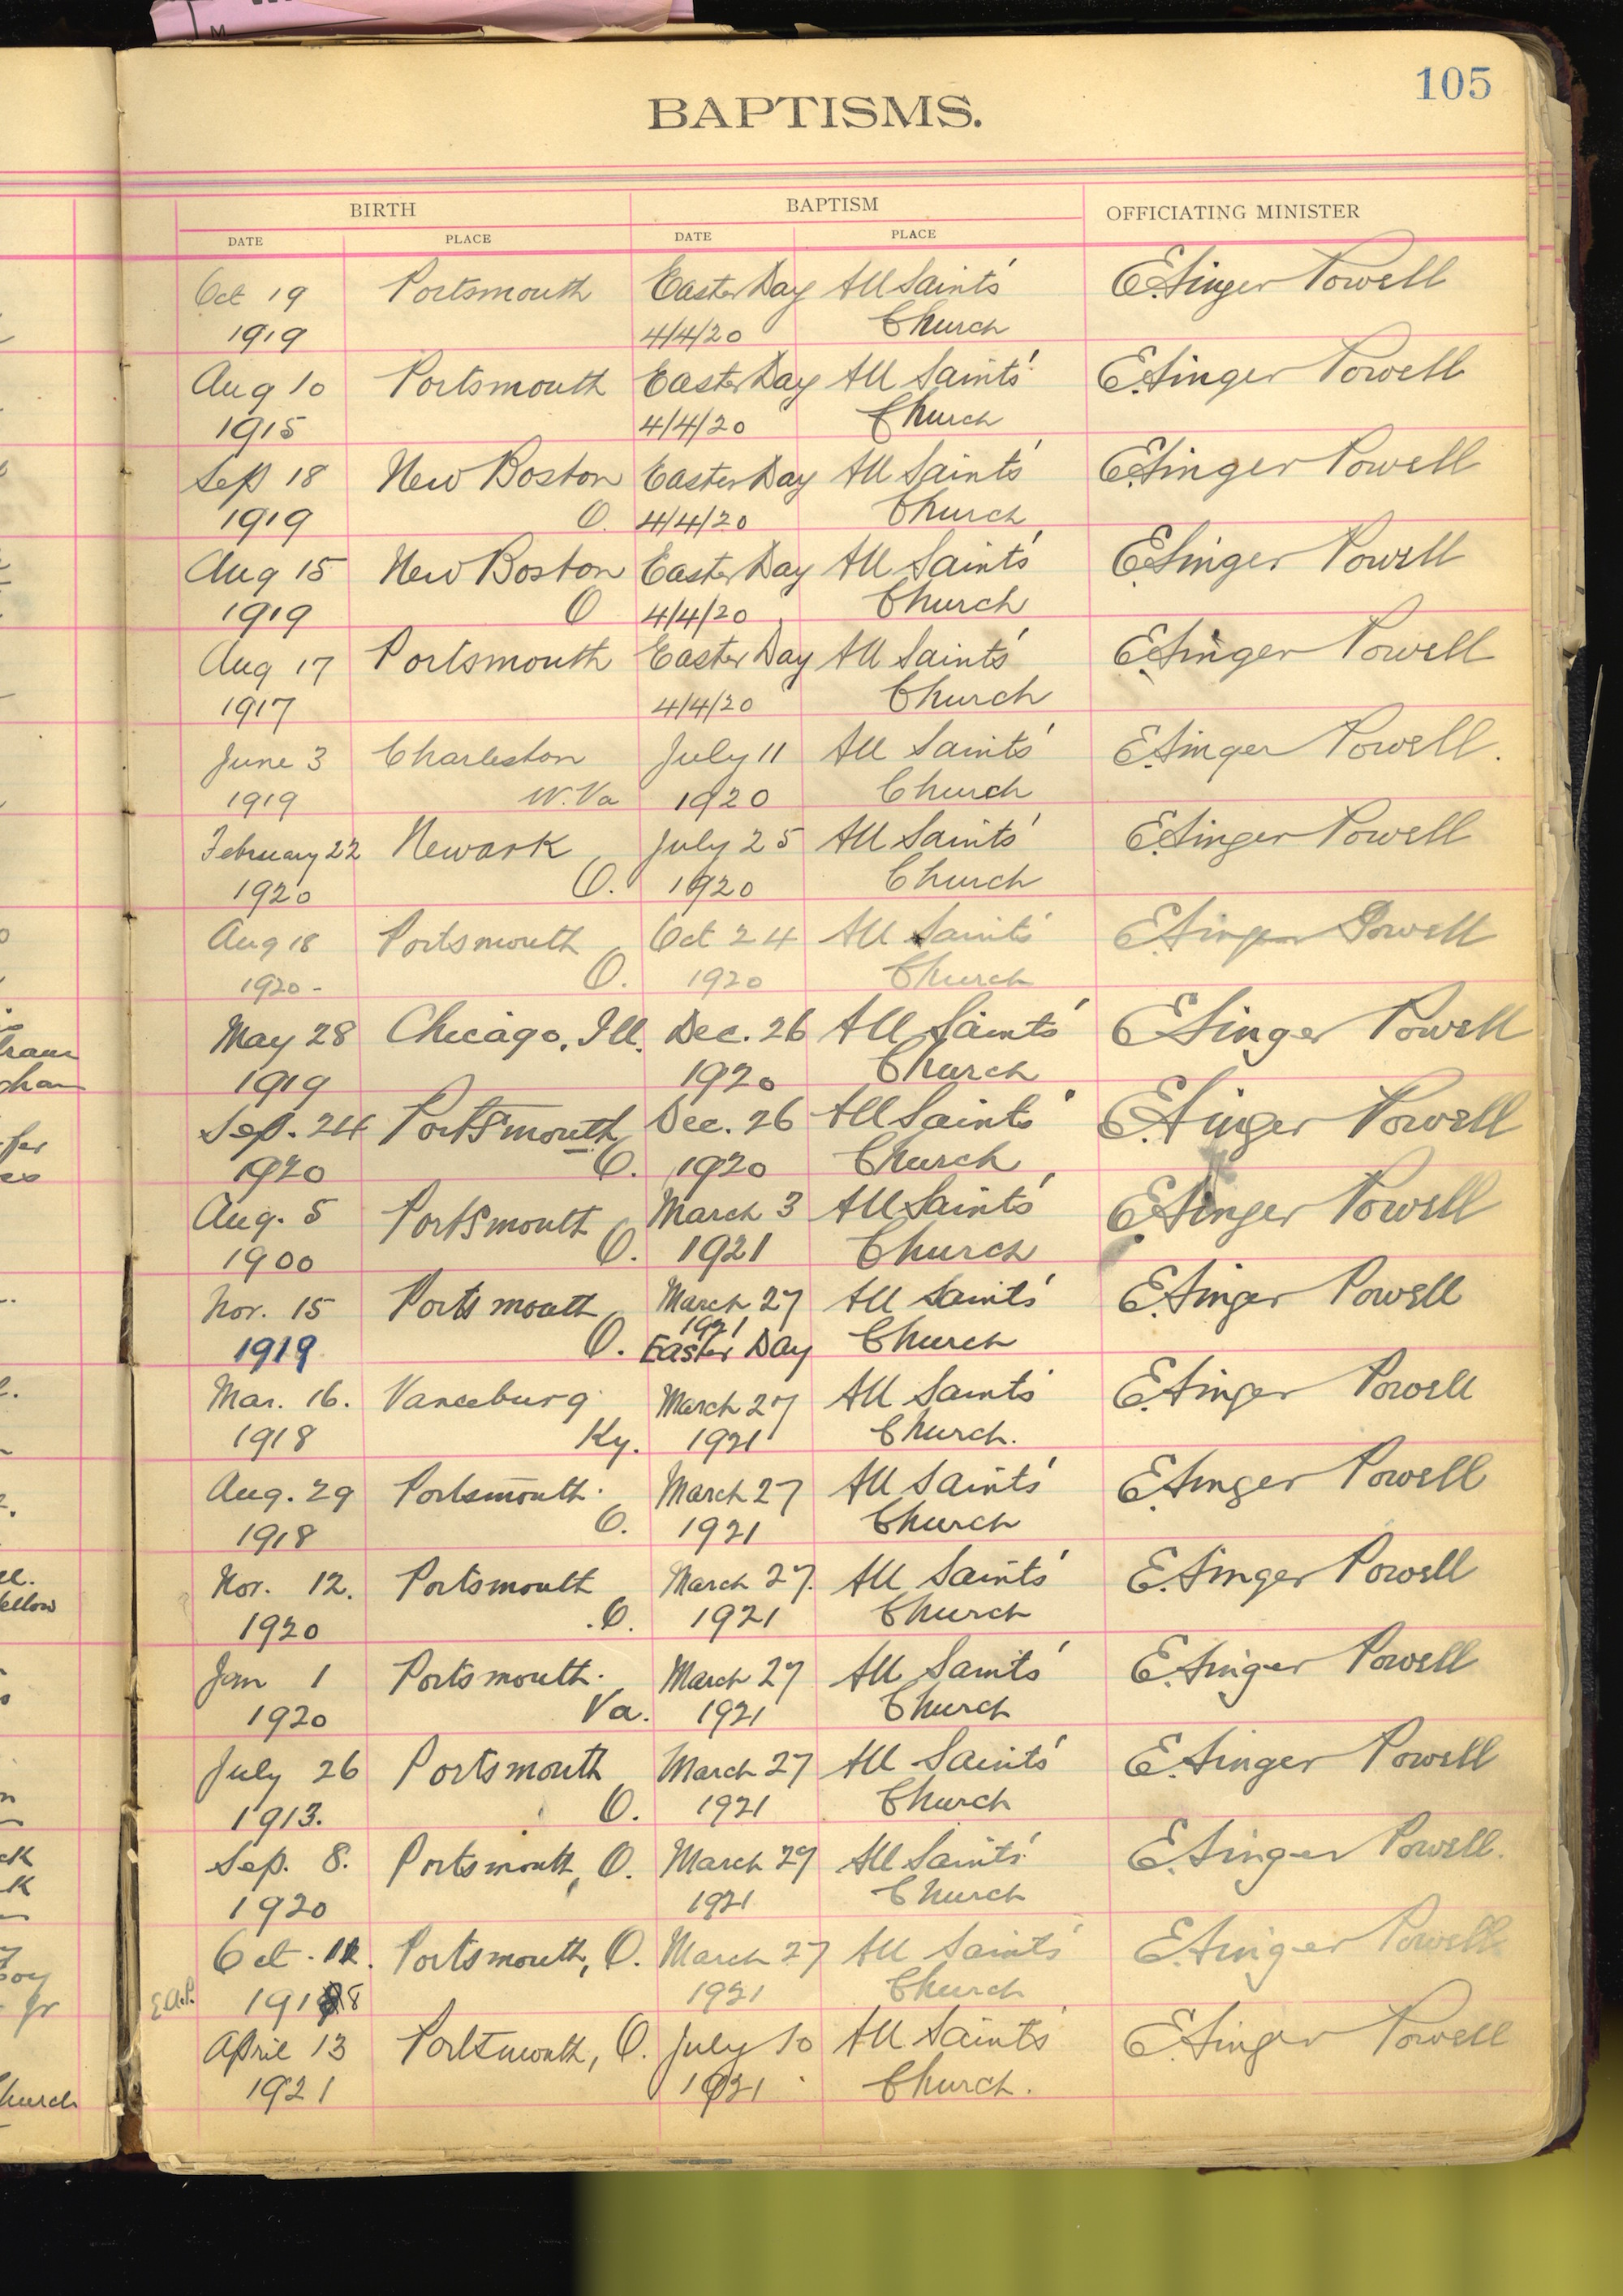 105
BAPTISMS.
BIRTH BAPTISM OFFICIATING MINISTER
DATE PLACE DATE PLACE
Oct 19 Portsmouth Easter Day All Saints' E. Ainger Powell
1919 4/4/20 Church
Aug 10 Portsmouth Easter Day All Saints' E. Ainger Powell
1915 4/4/20 Church
Sep 18 New Boston Easter Day All Saints' E. Ainger Powell
1919 O. 4/4/20 Church
Aug 15 New Boston Easter Day All Saints' E. Ainger Powell
1919 O 4/4/20 Church
Aug 17 Portsmouth Easter Day All Saints' E. Ainger Powell
1917 4/4/20 Church
June 3 Charleston July 11 All Saints' E. Ainger Powell.
1919 W. Va 1920 Church
February 22 Newark July 25 All Saints' E. Ainger Powell
1920 O. 1920 Church
Aug 18 Portsmouth Oct 24 All Saints' E. Ainger Powell
1920 - O. 1920 Church
May 28 Chicago, Ill. Dec. 26 All Saints' E. Ainger Powell
1919 1920 Church
Sep. 24 Portsmouth Dec. 26 All Saints' E. Ainger Powell
1920 O. 1920 Church
Aug. 5 Portsmouth March 3 All Saints' E. Ainger Powell
1900 O. 1921 Church
Nov. 15 Portsmouth March 27 All Saints' E. Ainger Powell
1921
1919 O. Easter Day Church
Mar. 16. Vanceburg March 27 All Saints' E. Ainger Powell
1918 Ky. 1921 Church.
Aug. 29 Portsmouth. March 27 All Saints' E. Ainger Powell
1918 O. 1921 Church
Nov. 12. Portsmouth March 27. All Saints' E. Ainger Powell
1920 O. 1921 Church
Jan 1 Portsmouth. March 27 All Saints' E. Ainger Powell
1920 Va. 1921 Church
July 26 Portsmouth March 27 All Saints' E. Ainger Powell
1913. O. 1921 Church
Sep. 8. Portsmouth, O. March 27 All Saints' E. Ainger Powell.
1920 1921 Church
Oct. Portsmouth, O. March 27 All Saints' E. Ainger Powell
E.A.P. 1921 Church
April 13 Portsmouth, O. July 10 All Saints' E. Ainger Powell
1921 1921 Church.